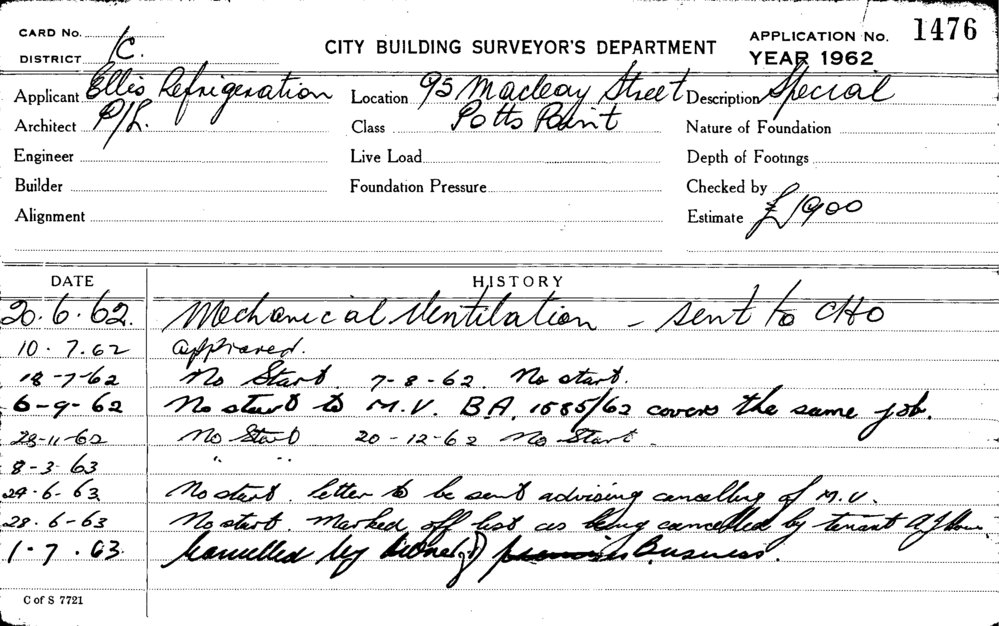 CARD No.
DISTRICT 1C.
CITY BUILDING SURVEYOR'S DEPARTMENT
APPLICATION No. 1476
YEAR 1962
Applicant Ellis Refrigeration
Location 95 Macleay Street
Description Special
Architect P/L.
Class Potts Point
Nature of Foundation
Engineer
Live Load
Depth of Footings
Builder
Foundation Pressure
Checked by
Alignment
Estimate £1900
DATE HISTORY
20.6.62. Mechanical Ventilation - sent to CHO
10.7.62 approved.
18-7-62 No Start. 7-8-62. No start.
6-9-62 No start to M.V. BA. 1585/62 covers the same job.
28-11-62 No Start 20-12-62 No Start.
8-3-63 " "
24-6-63 No start. letter to be sent advising cancelling of M.V.
28.6-63 No start. Marked off list as being cancelled by tenant
1.7.63. Cancelled by Business.
C of S 7721